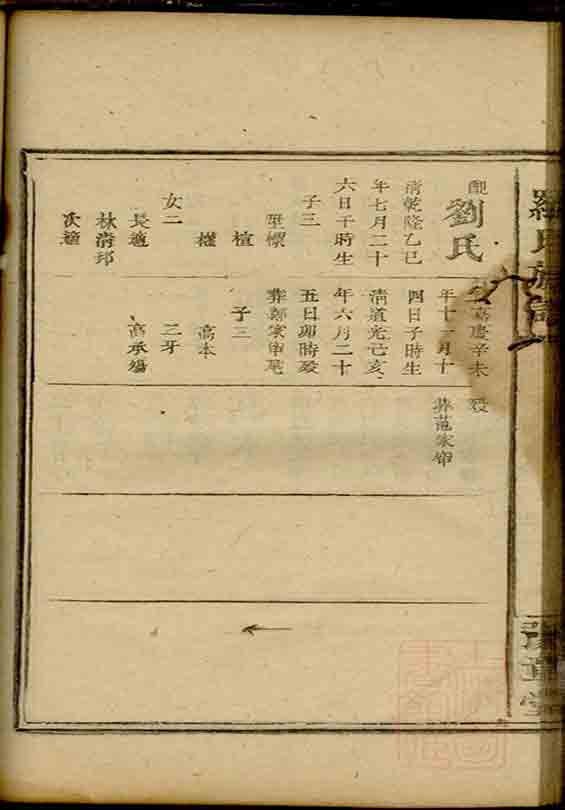 羅氏族譜
豫章堂
配
劉氏
清乾隆乙巳
年七月二十
六日午時生
子三
型標
植
女二
長適
林清邦
次適
嘉慶辛未
年十一月十
四日子時生
清道光己亥
年六月二十
五日卯時歿
子三
高本
三牙
高承編
歿